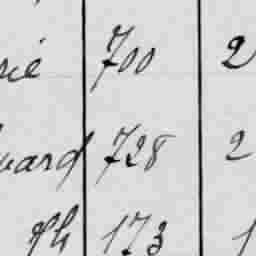 rié 700 2
ward 728 2
173 1